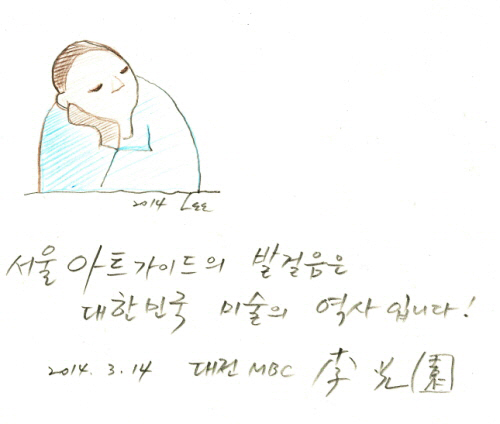 2014 Lee
서울 아트가이드의 발걸음은
대한민국 미술의 역사입니다!
2014. 3. 14 대전 MBC 李光園